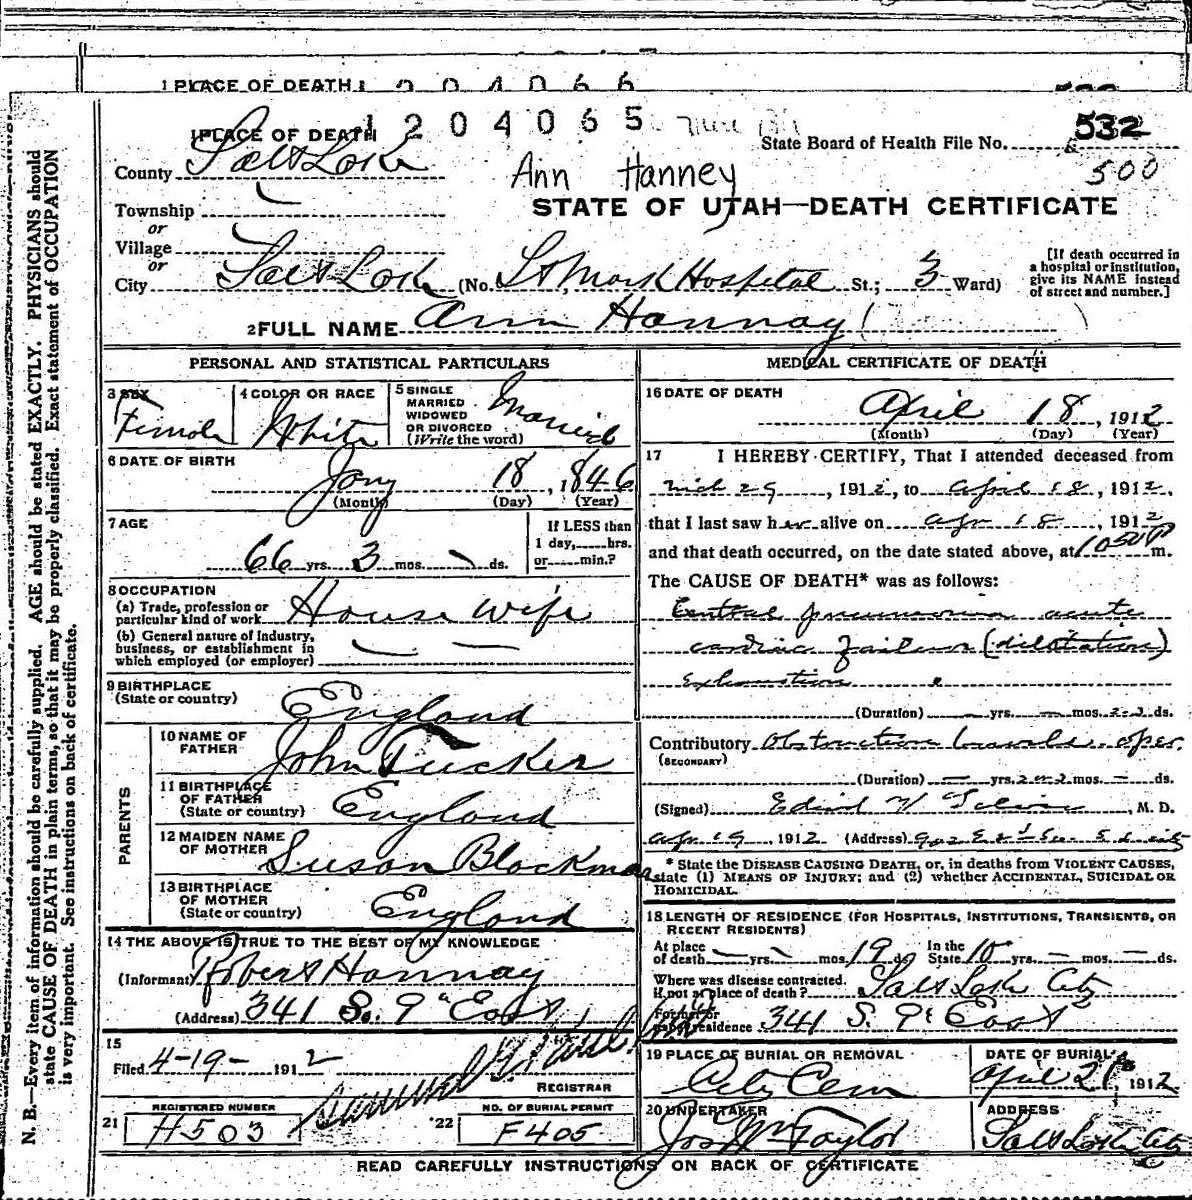 1 PLACE OF DEATH 1 2 0 4 0 6 6
1 PLACE OF DEATH 1 2 0 4 0 6 5
State Board of Health File No. 532
500
County Salt Lake
Ann Hanney
STATE OF UTAH—DEATH CERTIFICATE
Township
or
Village
or
City Salt Lake (No. St Mark Hospital St.; 3 Ward)
[If death occurred in a hospital or institution, give its NAME instead of street and number.]
2 FULL NAME Ann Hannay ( )
PERSONAL AND STATISTICAL PARTICULARS
3 SEX Female
4 COLOR OR RACE White
5 SINGLE MARRIED WIDOWED OR DIVORCED (Write the word) Married
6 DATE OF BIRTH Jany 18, 1846
(Month) (Day) (Year)
7 AGE 66 yrs. 3 mos. ds.
If LESS than 1 day, hrs. or min.?
8 OCCUPATION
(a) Trade, profession or particular kind of work House wife
(b) General nature of industry, business, or establishment in which employed (or employer)
9 BIRTHPLACE (State or country) England
PARENTS
10 NAME OF FATHER John Tucker
11 BIRTHPLACE OF FATHER (State or country) England
12 MAIDEN NAME OF MOTHER Susan Blackman
13 BIRTHPLACE OF MOTHER (State or country) England
14 THE ABOVE IS TRUE TO THE BEST OF MY KNOWLEDGE
(Informant) Robert Hannay
(Address) 341 So. 9" East
15
Filed 4-19- 1912
REGISTRAR
21 REGISTERED NUMBER H503
22 NO. OF BURIAL PERMIT F405
MEDICAL CERTIFICATE OF DEATH
16 DATE OF DEATH
April 18, 1912
(Month) (Day) (Year)
17 I HEREBY CERTIFY, That I attended deceased from
Mch 29, 1912, to April 18, 1912,
that I last saw her alive on Apr 18, 1912
and that death occurred, on the date stated above, at 1050 P m.
The CAUSE OF DEATH* was as follows:
Central pneumonia acute
cardiac failure (dilatation)
Exhaustion
(Duration) yrs. mos. 2-3 ds.
Contributory Obstruction bowels oper.
(SECONDARY)
(Duration) yrs. 2 or 3 mos. ds.
(Signed) M. D.
Apr. 19, 1912 (Address)
* State the DISEASE CAUSING DEATH, or, in deaths from VIOLENT CAUSES, state (1) MEANS OF INJURY; and (2) whether ACCIDENTAL, SUICIDAL OR HOMICIDAL.
18 LENGTH OF RESIDENCE (FOR HOSPITALS, INSTITUTIONS, TRANSIENTS, OR RECENT RESIDENTS)
At place of death yrs. mos. 19 ds. In the State 10 yrs. mos. ds.
Where was disease contracted. If not at place of death? Salt Lake City
Former or usual residence 341 S. 9t East
19 PLACE OF BURIAL OR REMOVAL City Cem
DATE OF BURIAL April 21, 1912
20 UNDERTAKER Jos Wm Taylor
ADDRESS Salt Lake City
READ CAREFULLY INSTRUCTIONS ON BACK OF CERTIFICATE
N. B.—Every item of information should be carefully supplied. AGE should be stated EXACTLY. PHYSICIANS should
state CAUSE OF DEATH in plain terms, so that it may be properly classified. Exact statement of OCCUPATION
is very important. See instructions on back of certificate.